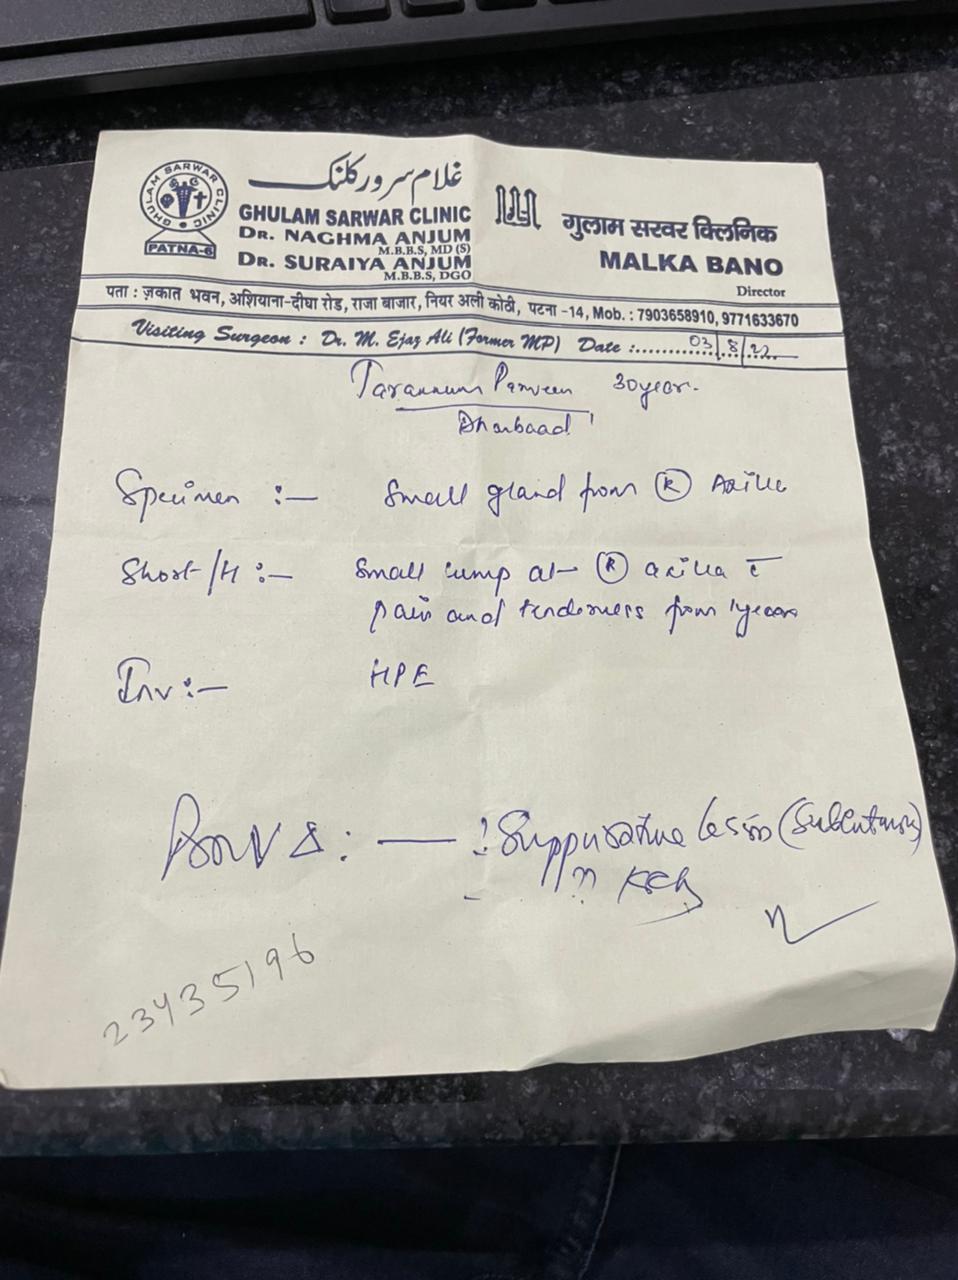 GHULAM SARWAR CLINIC
PATNA-6
غلام سرور کلنک
GHULAM SARWAR CLINIC
DR. NAGHMA ANJUM
M.B.B.S, MD (S)
DR. SURAIYA ANJUM
M.B.B.S, DGO
गुलाम सरवर क्लिनिक
MALKA BANO
Director
पता : ज़कात भवन, अशियाना-दीघा रोड, राजा बाजार, नियर अली कोठी, पटना -14, Mob. : 7903658910, 9771633670
Visiting Surgeon : Dr. M. Ejaz Ali (Former MP) Date :........03/8/22....
Tarannum Parveen 30year.
Specimen :— Small gland from (R) Axilla
Short/H :— Small lump at (R) axilla c̄
pain and tenderness from 1years
Inv :— HPE
Suppurative lesion
23435196